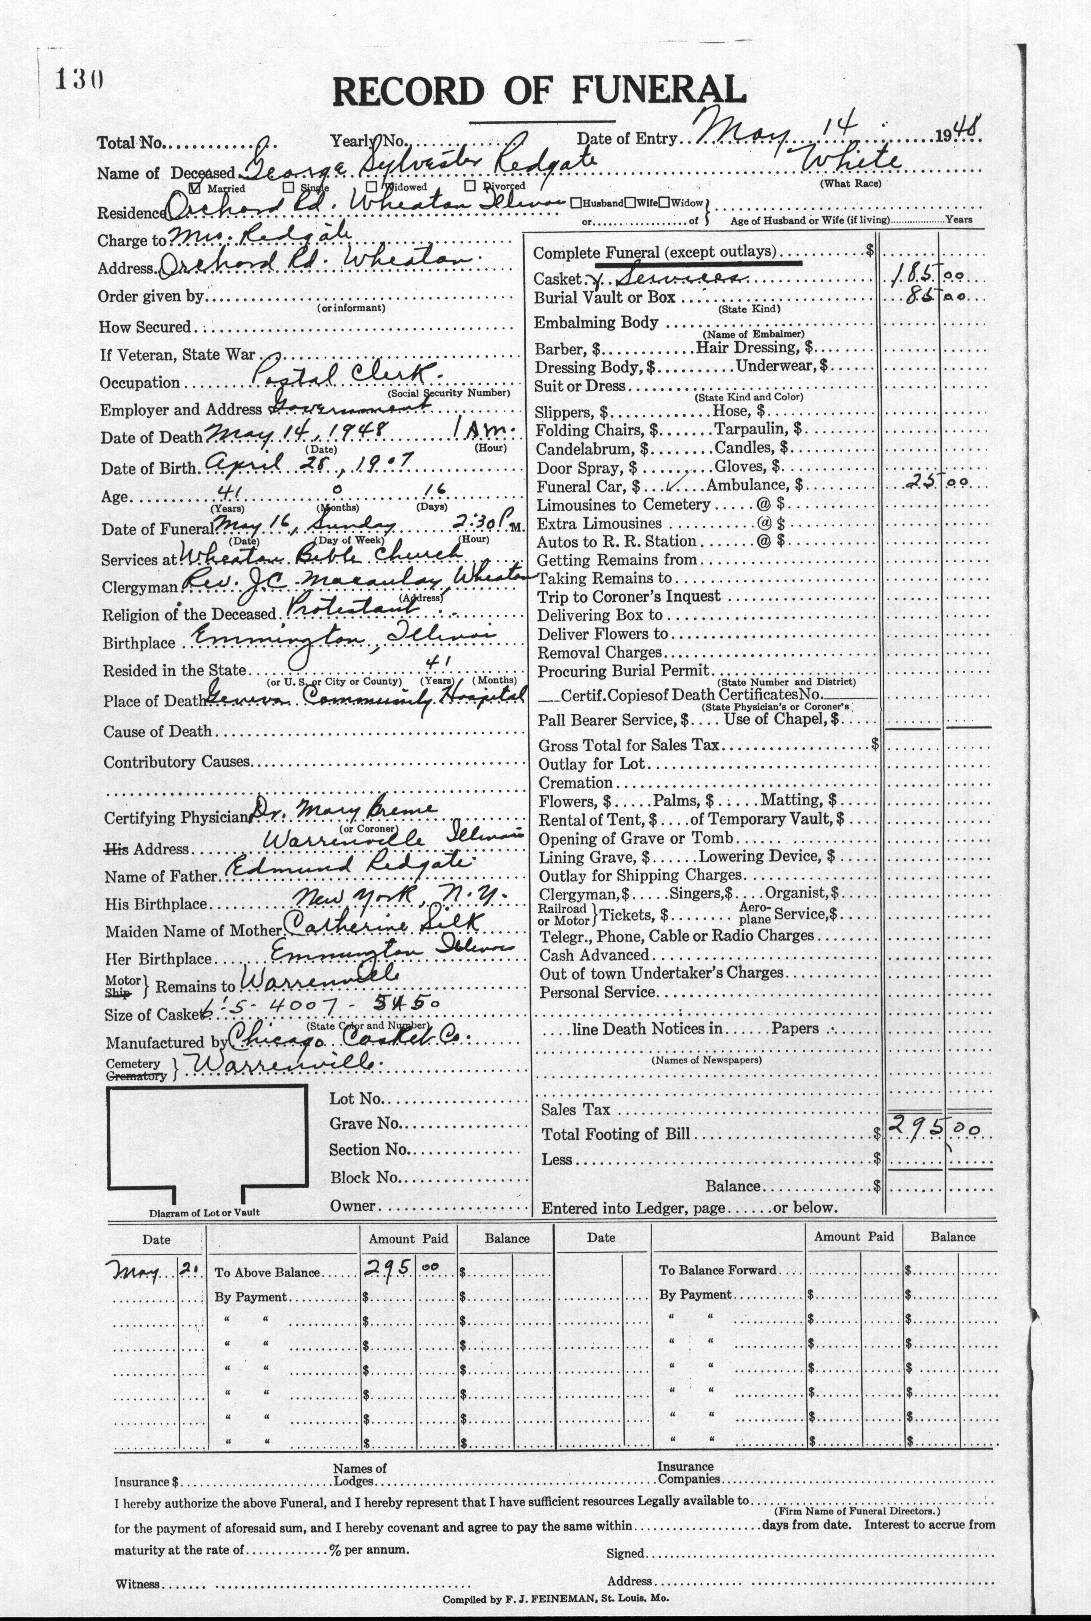 130
RECORD OF FUNERAL
Total No. Yearly No. Date of Entry May 14 1948
Name of Deceased George Sylvester Redgate White
☑ Married ☐ Single ☐ Widowed ☐ Divorced (What Race)
Residence Orchard Rd. Wheaton Illinois ☐Husband☐Wife☐Widow}
or of } Age of Husband or Wife (if living) Years
Charge to Mrs. Redgate
Address Orchard Rd. Wheaton.
Order given by
(or informant)
How Secured
If Veteran, State War
Occupation Postal Clerk.
(Social Security Number)
Employer and Address Government
Date of Death May 14, 1948 1 A.m.
(Date) (Hour)
Date of Birth April 28, 1907
Age 41 0 16
(Years) (Months) (Days)
Date of Funeral May 16, Sunday 2:30 P.M.
(Date) (Day of Week) (Hour)
Services at Wheaton Bible Church
Clergyman Rev. J.C. Macaulay, Wheaton
(Address)
Religion of the Deceased Protestant
Birthplace Emmington, Illinois
Resided in the State 41
(or U. S. or City or County) (Years) (Months)
Place of Death Geneva Community Hospital
Cause of Death
Contributory Causes
Certifying Physician Dr. Mary Breme
(or Coroner)
His Address Warrenville Illinois
Name of Father Edmund Redgate
His Birthplace New York, N.Y.
Maiden Name of Mother Catherine Silk
Her Birthplace Emmington Illinois
Motor
Ship } Remains to Warrenville
Size of Casket 6'-5- 4007 - 5A50
(State Color and Number)
Manufactured by Chicago Casket Co.
Cemetery
Crematory } Warrenville.
Lot No.
Grave No.
Section No.
Block No.
Owner
Diagram of Lot or Vault
Complete Funeral (except outlays) $
Casket & Services 185 00
Burial Vault or Box 85 00
(State Kind)
Embalming Body
(Name of Embalmer)
Barber, $ Hair Dressing, $
Dressing Body, $ Underwear, $
Suit or Dress
(State Kind and Color)
Slippers, $ Hose, $
Folding Chairs, $ Tarpaulin, $
Candelabrum, $ Candles, $
Door Spray, $ Gloves, $
Funeral Car, $ ✓ Ambulance, $ 25 00
Limousines to Cemetery @ $
Extra Limousines @ $
Autos to R. R. Station @ $
Getting Remains from
Taking Remains to
Trip to Coroner's Inquest
Delivering Box to
Deliver Flowers to
Removal Charges
Procuring Burial Permit
(State Number and District)
Certif. Copies of Death Certificates No.
(State Physician's or Coroner's
Pall Bearer Service, $ Use of Chapel, $
Gross Total for Sales Tax $
Outlay for Lot
Cremation
Flowers, $ Palms, $ Matting, $
Rental of Tent, $ of Temporary Vault, $
Opening of Grave or Tomb
Lining Grave, $ Lowering Device, $
Outlay for Shipping Charges
Clergyman, $ Singers, $ Organist, $
Railroad
or Motor } Tickets, $ Aero-
plane Service, $
Telegr., Phone, Cable or Radio Charges
Cash Advanced
Out of town Undertaker's Charges
Personal Service
line Death Notices in Papers
(Names of Newspapers)
Sales Tax
Total Footing of Bill $ 295 00
Less $
Balance $
Entered into Ledger, page or below.
Date Amount Paid Balance Date Amount Paid Balance
May 21 To Above Balance 295 00 $ To Balance Forward $
By Payment $ $ By Payment $ $
" " $ $ " " $ $
" " $ $ " " $ $
" " $ $ " " $ $
" " $ $ " " $ $
" " $ $ " " $ $
" " $ $ " " $ $
Insurance $ Names of
Lodges Insurance
Companies
I hereby authorize the above Funeral, and I hereby represent that I have sufficient resources Legally available to
(Firm Name of Funeral Directors.)
for the payment of aforesaid sum, and I hereby covenant and agree to pay the same within days from date. Interest to accrue from
maturity at the rate of % per annum. Signed
Witness Address
Compiled by F. J. FEINEMAN, St. Louis, Mo.